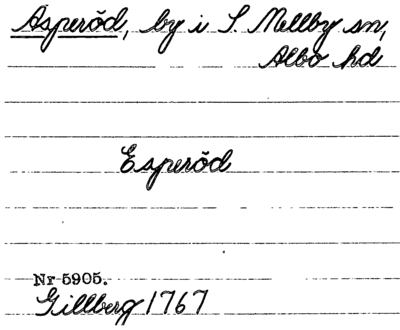 Asperöd, by i S. Mellby sn,
Albo hd
Esperöd
Nr 5905.
Gillberg 1767